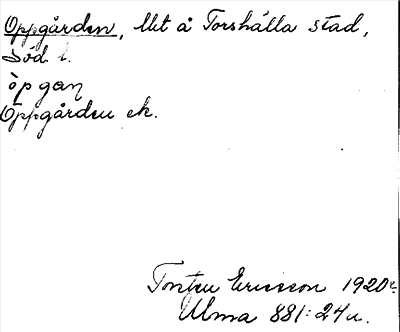 Oppgården, lht å Torshälla stad,
Söd l.
òpgan
Oppgården ek.
Torsten Ericsson 1920
Ulma 881:24 u.